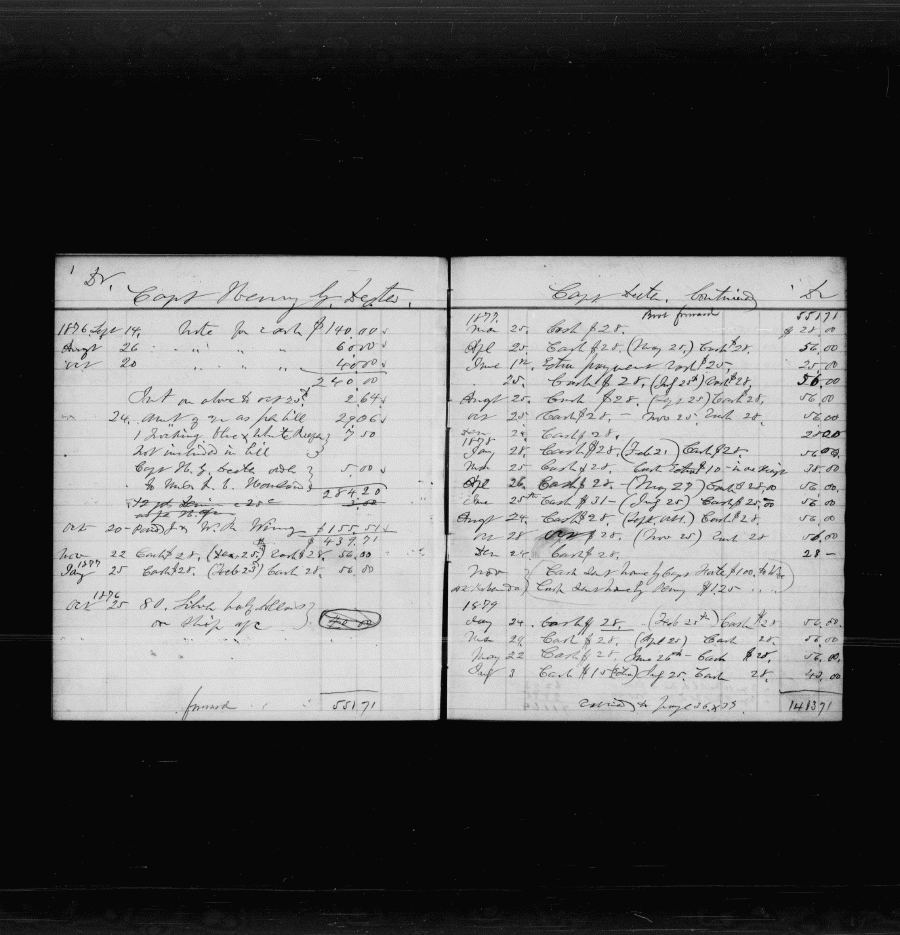 1 Dr.
Capt Henry G. Dexter.
1876 Sept 14. Note for cash $140.00
Augt 26 " " " " 60.00
Oct 20 " " " " 40.00
240.00
Int on above to Oct 25th 2.64
24. Amt of as per bill 29.06
7.50
Not included in bill
Capt H. G. Dexter order 5.00
To
284.20
Oct 20 Paid for W. H. $155.51
$439.71
Nov 22 Cash $28. (Dec 25) Cash $28. 56.00
1877
Jany 25 Cash $28. (Feb 25) Cash 28. 56.00
1876
Oct 25 80. Silver half dollars
on ship a/c 40.00
forward 551.71
Capt Dexter. Continued Dr
1877. Brot forward 551.71
Mar 25. Cash $28. $28.00
Apl 25. Cash $28. (May 25.) Cash $28. 56.00
June 1st. Extra payment Cash $25. 25.00
" 25. Cash $28. (July 25th) Cash $28. 56.00
Augt 25. Cash $28. (Sep 25) Cash 28. 56.00
Oct 25. Cash $28. – Nov 25 Cash 28. 56.00
Dec Cash $28. 28.00
1878
Jany 28. Cash $28. (Feb 21) Cash $28. 56.00
Mar 25 Cash $28. Cash $10 – 38.00
Apl 26. Cash $28. – (May 27) Cash $28.00 56.00
June 25th Cash $31 – (July 25) Cash $25.00 56.00
Augt 24. Cash $28. (Sept) Cash $28. 56.00
Oct 28 $28. (Nov 25) Cash 28 56.00
Dec 24 Cash $28. 28 –
Nov (Cash sent home by Capt $100. to)
Cash sent home by $125
1879
Jany 24. Cash $28. (Feb 25th) Cash $28 56.00
Mar Cash $28. (Apl 25) Cash 28. 56.00
May 22 Cash $28. June 26th – Cash $28. 56.00
July 3 Cash $15 July 25. Cash 28. 43.00
Carried to page 1413.71